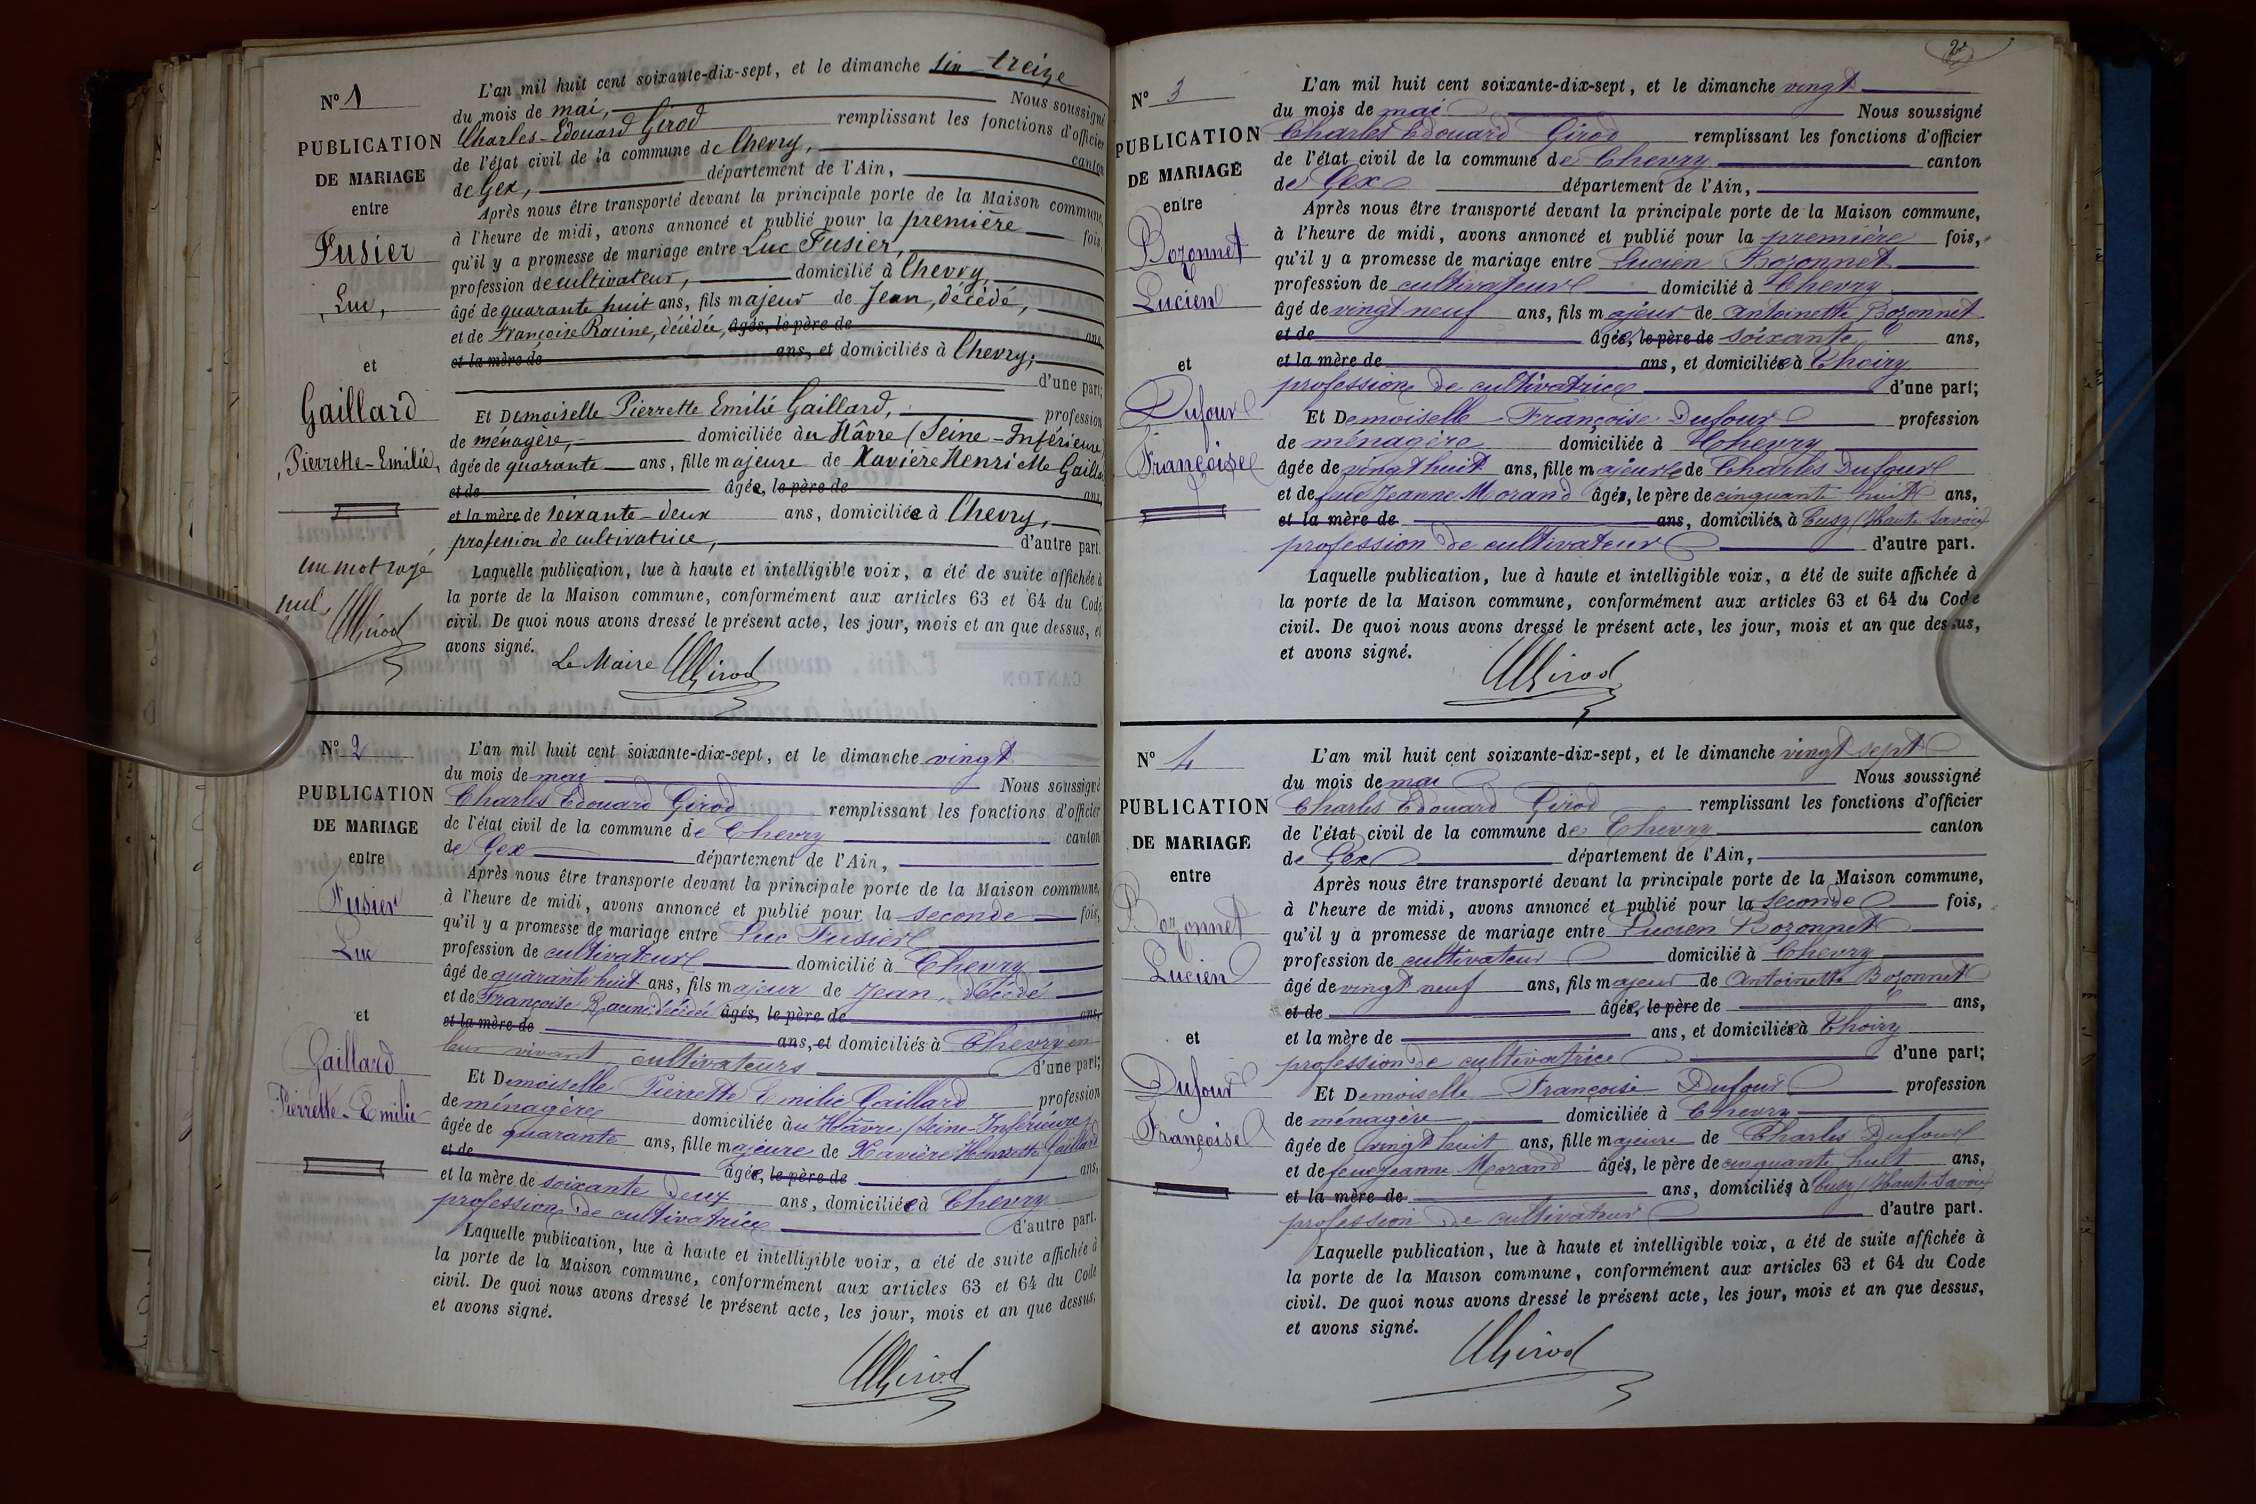 N° 1
PUBLICATION
DE MARIAGE
entre
Fusier
Luc,
et
Gaillard
Pierrette-Emilie,
un mot rayé
nul.
Girod
L'an mil huit cent soixante-dix-sept, et le dimanche six treize
du mois de mai, Nous soussigné
Charles-Edouard Girod remplissant les fonctions d'officier
de l'état civil de la commune de Chevry, canton
de Gex, département de l'Ain,
Après nous être transporté devant la principale porte de la Maison commune,
à l'heure de midi, avons annoncé et publié pour la première fois,
qu'il y a promesse de mariage entre Luc Fusier,
profession de cultivateur, domicilié à Chevry,
âgé de quarante huit ans, fils majeur de Jean, décédé,
et de Françoise Racine, décédée, âgés, le père de ans,
et la mère de ans, et domiciliés à Chevry,
d'une part;
Et Demoiselle Pierrette Emilie Gaillard, profession
de ménagère, domiciliée au Hâvre (Seine-Inférieure)
âgée de quarante ans, fille majeure de Xavière Henriette Gaillard
et de âgée, le père de ans,
et la mère de soixante-deux ans, domiciliée à Chevry,
profession de cultivatrice, d'autre part.
Laquelle publication, lue à haute et intelligible voix, a été de suite affichée à
la porte de la Maison commune, conformément aux articles 63 et 64 du Code
civil. De quoi nous avons dressé le présent acte, les jour, mois et an que dessus, et
avons signé.
Le Maire Girod
N° 2
PUBLICATION
DE MARIAGE
entre
Fusier
Luc
et
Gaillard
Pierrette-Emilie
L'an mil huit cent soixante-dix-sept, et le dimanche vingt
du mois de mai Nous soussigné
Charles Edouard Girod remplissant les fonctions d'officier
de l'état civil de la commune de Chevry canton
de Gex département de l'Ain,
Après nous être transporté devant la principale porte de la Maison commune,
à l'heure de midi, avons annoncé et publié pour la seconde fois,
qu'il y a promesse de mariage entre Luc Fusier
profession de cultivateur domicilié à Chevry
âgé de quarante huit ans, fils majeur de Jean, décédé
et de Françoise Racine décédée âgés, le père de ans,
et la mère de ans, et domiciliés à Chevry en
leur vivant cultivateurs d'une part;
Et Demoiselle Pierrette Emilie Gaillard profession
de ménagère domiciliée au Hâvre (Seine-Inférieure)
âgée de quarante ans, fille majeure de Xavière Henriette Gaillard
et de âgée, le père de ans,
et la mère de soixante deux ans, domiciliée à Chevry
profession de cultivatrice d'autre part.
Laquelle publication, lue à haute et intelligible voix, a été de suite affichée à
la porte de la Maison commune, conformément aux articles 63 et 64 du Code
civil. De quoi nous avons dressé le présent acte, les jour, mois et an que dessus,
et avons signé.
Girod
2
N° 3
PUBLICATION
DE MARIAGE
entre
Bozonnet
Lucien
et
Dufour
Françoise
L'an mil huit cent soixante-dix-sept, et le dimanche vingt
du mois de mai Nous soussigné
Charles Edouard Girod remplissant les fonctions d'officier
de l'état civil de la commune de Chevry canton
de Gex département de l'Ain,
Après nous être transporté devant la principale porte de la Maison commune,
à l'heure de midi, avons annoncé et publié pour la première fois,
qu'il y a promesse de mariage entre Lucien Bozonnet
profession de cultivateur domicilié à Chevry
âgé de vingt neuf ans, fils majeur de Antoinette Bozonnet
et de âgée, le père de soixante ans,
et la mère de ans, et domiciliée à Thoiry
profession de cultivatrice d'une part;
Et Demoiselle Françoise Dufour profession
de ménagère domiciliée à Chevry
âgée de vingt huit ans, fille majeure de Charles Dufour
et de feue Jeanne Morand âgés, le père de cinquante huit ans,
et la mère de ans, domiciliés à Cusy (Haute Savoie)
profession de cultivateur d'autre part.
Laquelle publication, lue à haute et intelligible voix, a été de suite affichée à
la porte de la Maison commune, conformément aux articles 63 et 64 du Code
civil. De quoi nous avons dressé le présent acte, les jour, mois et an que dessus,
et avons signé.
Girod
N° 4
PUBLICATION
DE MARIAGE
entre
Bozonnet
Lucien
et
Dufour
Françoise
L'an mil huit cent soixante-dix-sept, et le dimanche vingt sept
du mois de mai Nous soussigné
Charles Edouard Girod remplissant les fonctions d'officier
de l'état civil de la commune de Chevry canton
de Gex département de l'Ain,
Après nous être transporté devant la principale porte de la Maison commune,
à l'heure de midi, avons annoncé et publié pour la seconde fois,
qu'il y a promesse de mariage entre Lucien Bozonnet
profession de cultivateur domicilié à Chevry
âgé de vingt neuf ans, fils majeur de Antoinette Bozonnet
et de âgée, le père de ans,
et la mère de ans, et domiciliée à Thoiry
profession de cultivatrice d'une part;
Et Demoiselle Françoise Dufour profession
de ménagère domiciliée à Chevry
âgée de vingt huit ans, fille majeure de Charles Dufour
et de feue Jeanne Morand âgés, le père de cinquante huit ans,
et la mère de ans, domiciliés à Cusy (Haute Savoie)
profession de cultivateur d'autre part.
Laquelle publication, lue à haute et intelligible voix, a été de suite affichée à
la porte de la Maison commune, conformément aux articles 63 et 64 du Code
civil. De quoi nous avons dressé le présent acte, les jour, mois et an que dessus,
et avons signé.
Girod